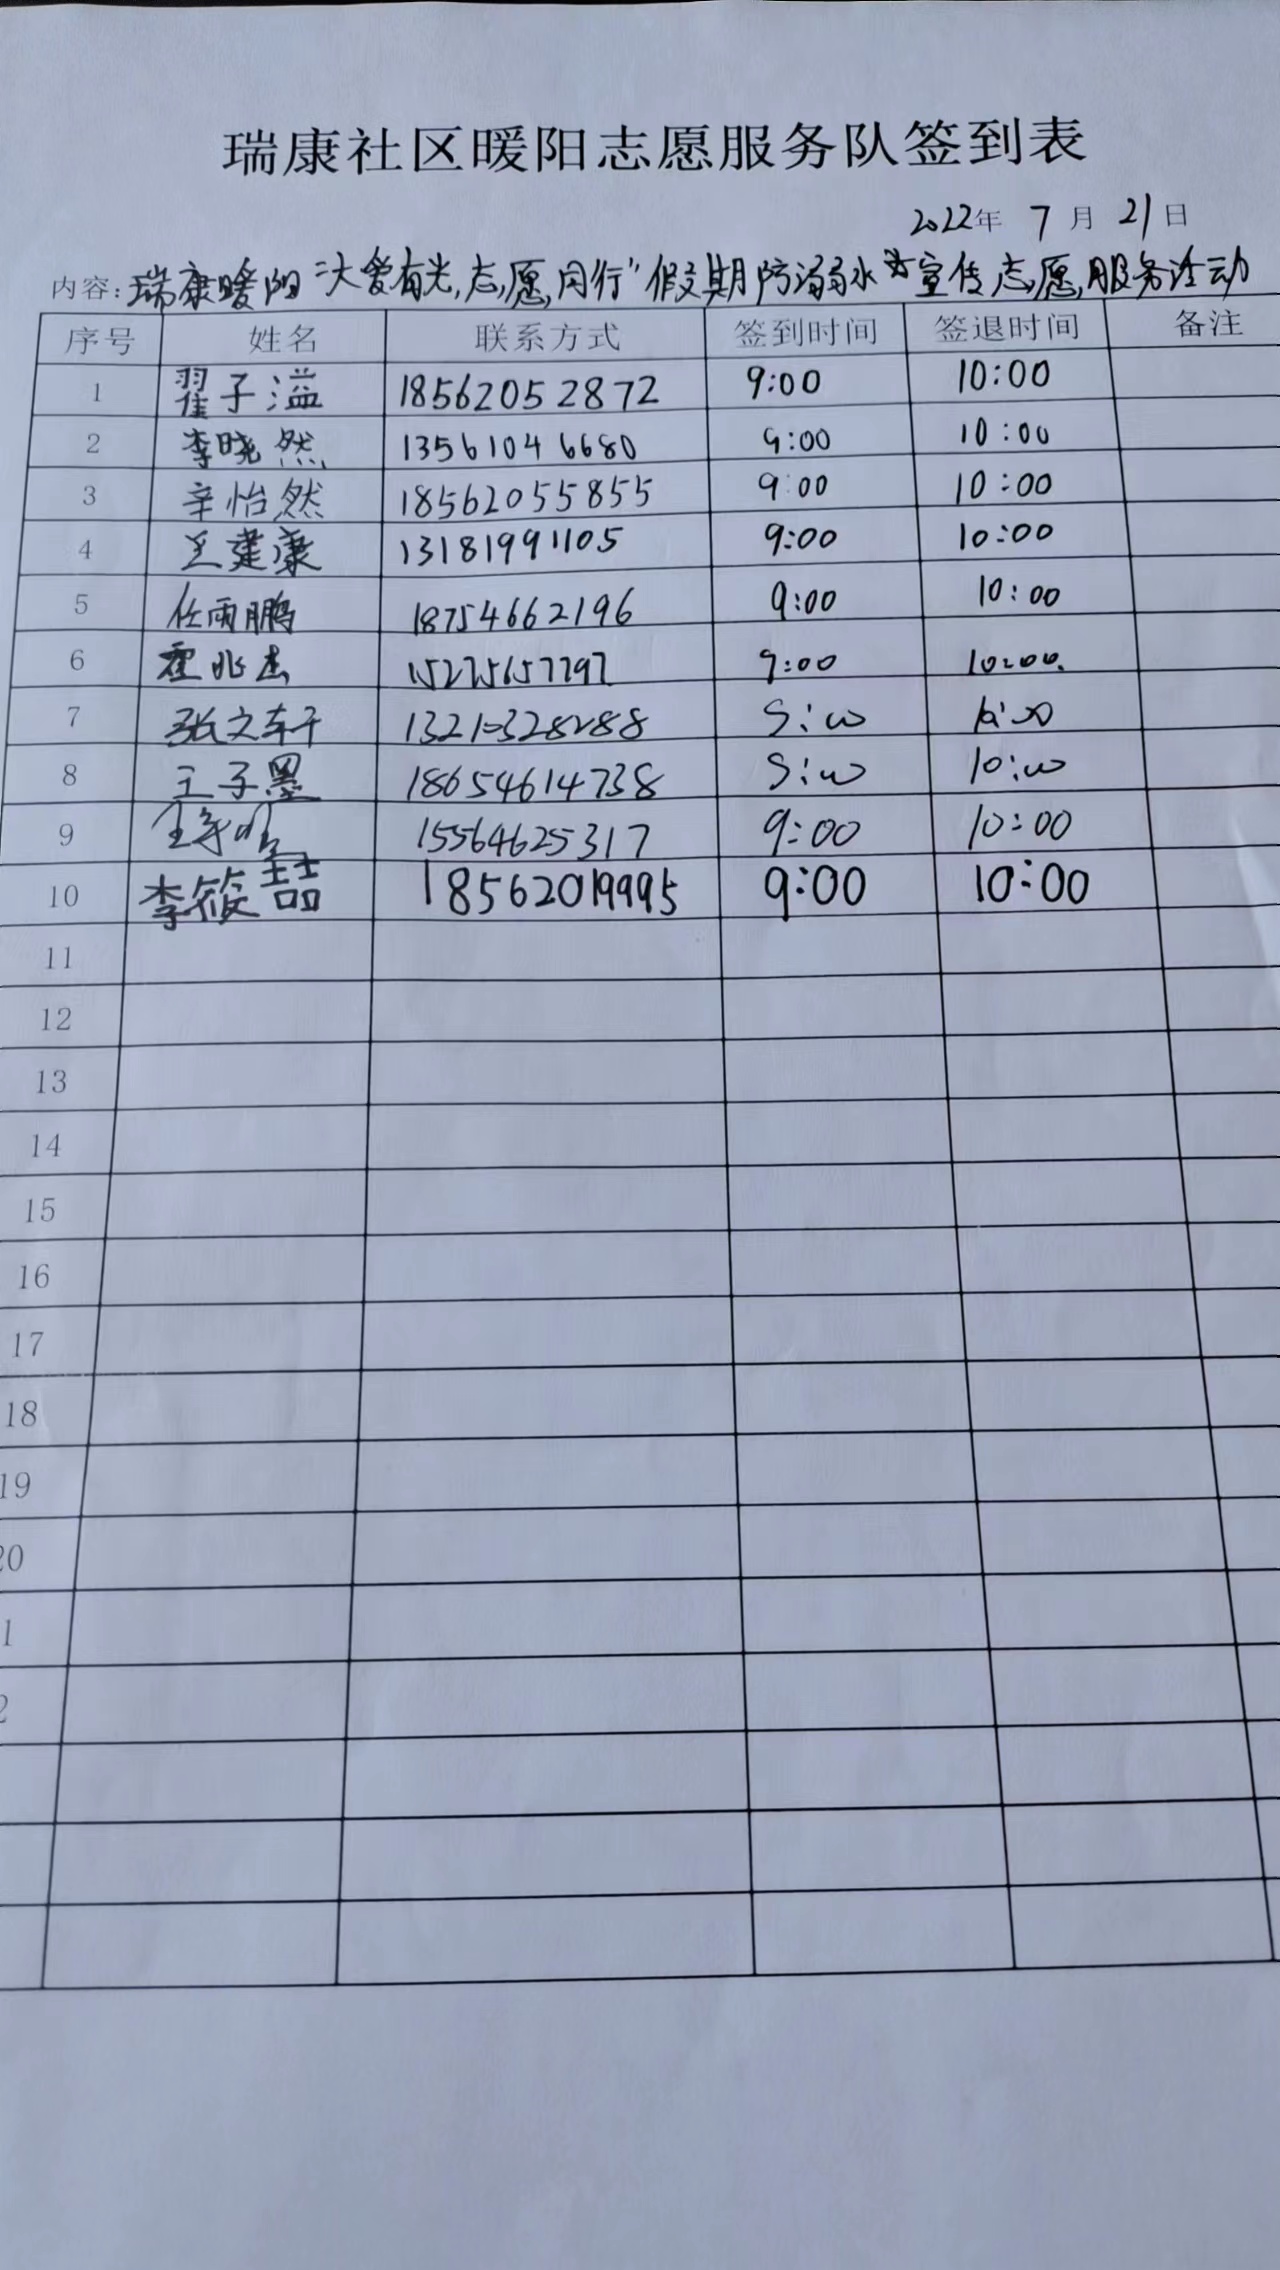 瑞康社区暖阳志愿服务队签到表
2022年 7 月 21 日
内容:瑞康暖阳"大爱有光,志愿同行"假期防溺水宣传志愿服务活动
序号 姓名 联系方式 签到时间 签退时间 备注
1 翟子溢 18562052872 9:00 10:00
2 李晓然 13561046680 9:00 10:00
3 辛怡然 18562055855 9:00 10:00
4 王建康 13181991105 9:00 10:00
5 任雨鹏 18754662196 9:00 10:00
6 霍兆杰 9:00 10:00
7 张文轩
8 王子墨 18654614738 10:00
9 15564625317 9:00 10:00
10 李筱喆 18562019995 9:00 10:00
11
12
13
14
15
16
17
18
19
20
1
2